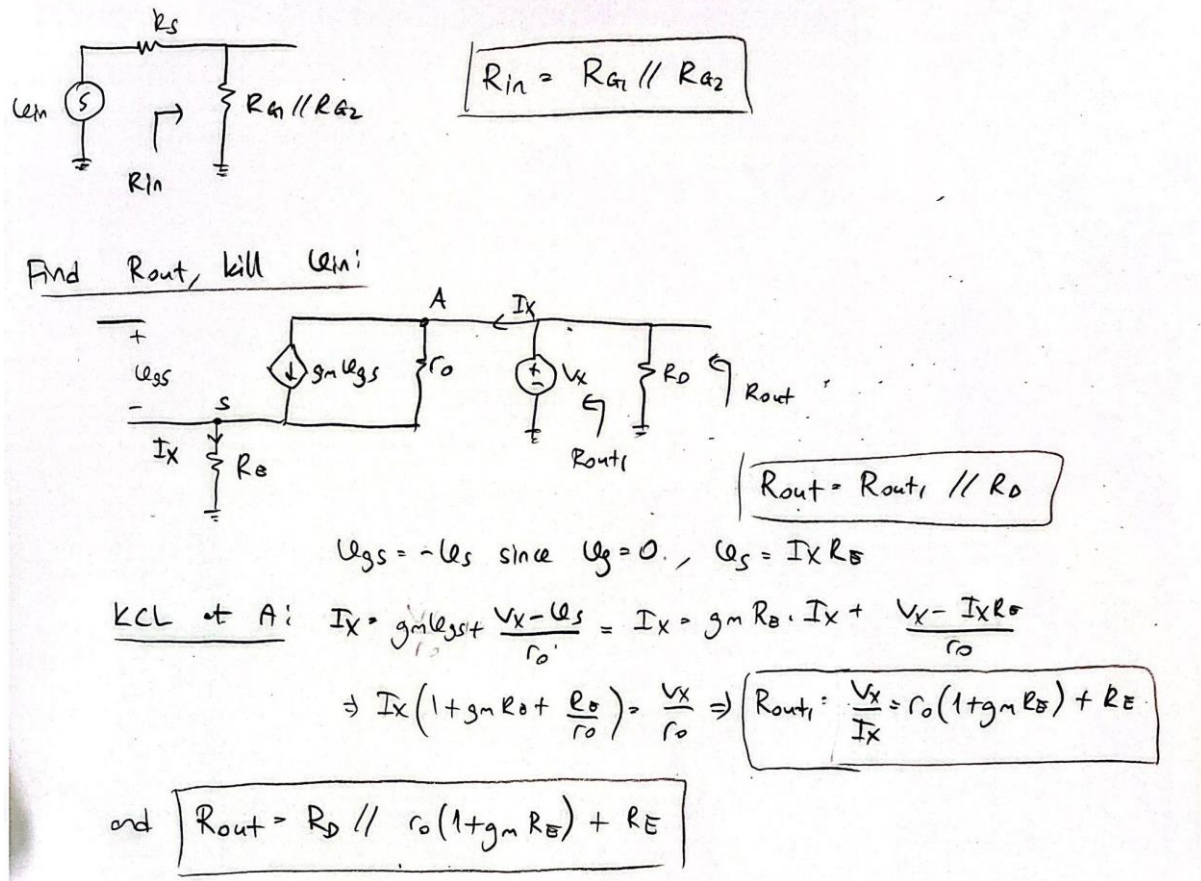 Rs
Rin = RG1 // RG2
Vin
S
RG1 // RG2
Rin
Find Rout, kill Vin:
A
Ix
+
Vgs
-
gmVgs
ro
+
-
Vx
RD
Rout
S
Ix
RE
Rout1
Rout = Rout1 // RD
Vgs = -Vs since Vg = 0., Vs = IxRE
KCL at A: Ix = gmVgs + (Vx - Vs)/ro = Ix = gmRE.Ix + (Vx - IxRE)/ro
⇒ Ix(1 + gmRE + RE/ro) = Vx/ro ⇒ Rout1: Vx/Ix = ro(1+gmRE) + RE
and Rout = RD // ro(1+gmRE) + RE